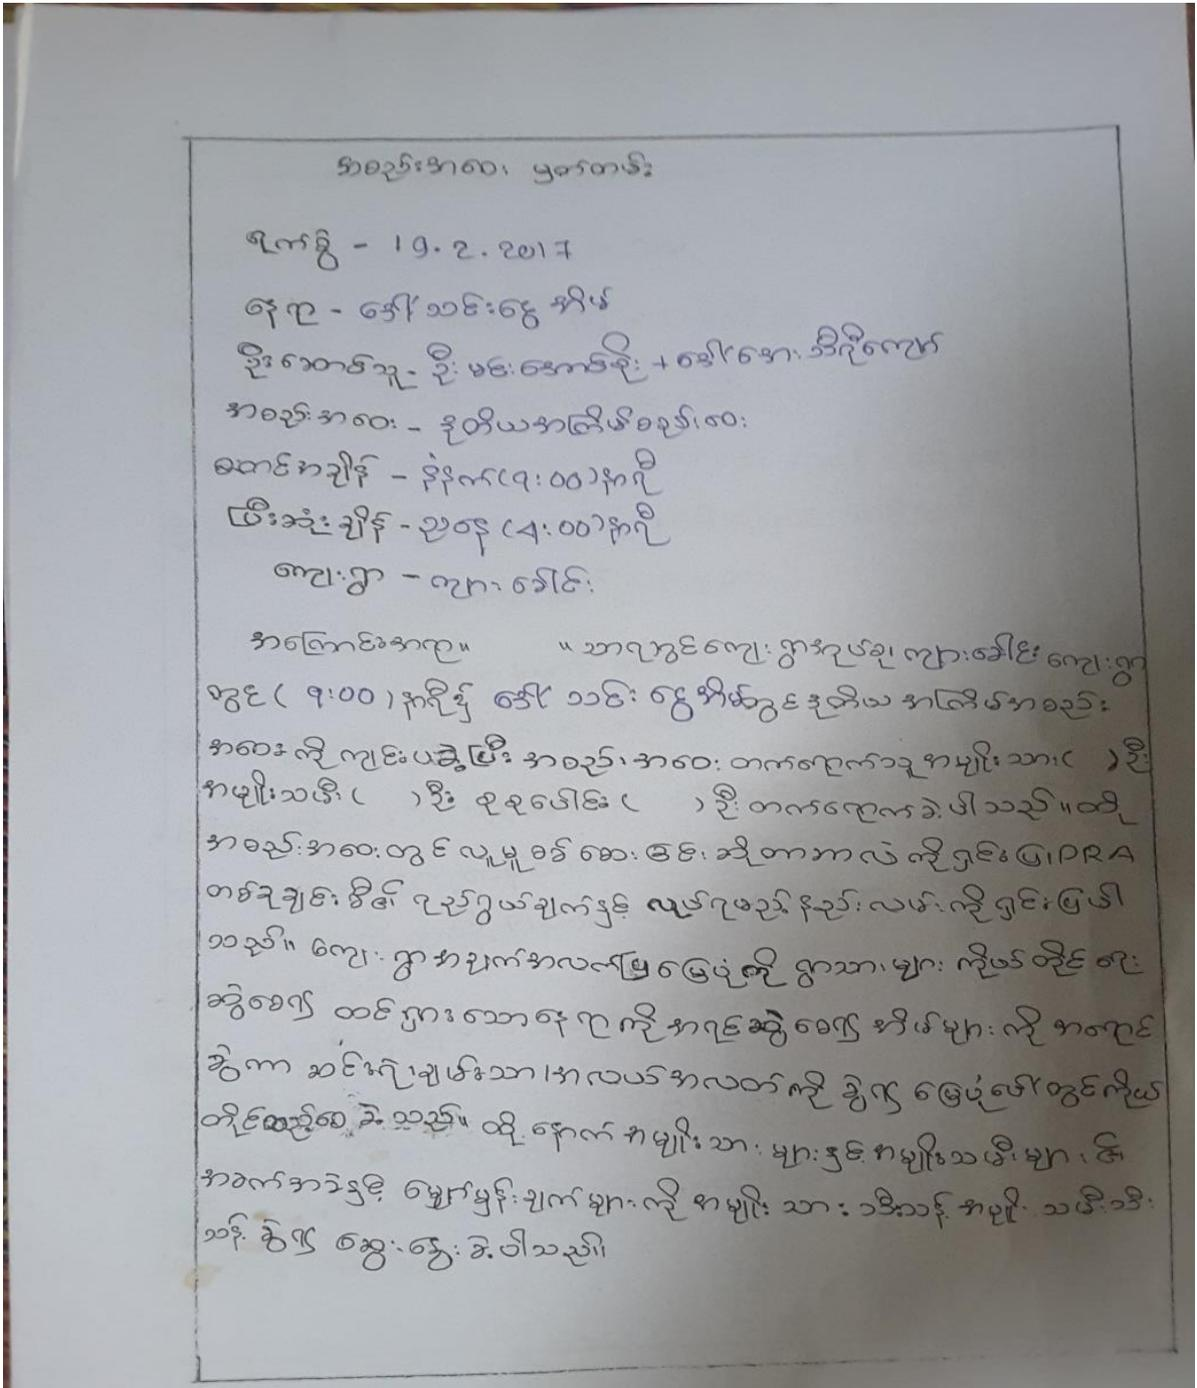 အစည်းအဝေး မှတ်တမ်း
ရက်စွဲ - 19.2.2017
နေရာ - ဒေါ်သင်းငွေအိမ်
ဦးဆောင်သူ - ဦးမင်းအောင်စိုး + ဒေါ်အေးသီရိကျော်
အစည်းအဝေး - ဒုတိယအကြိမ်စည်းဝေး
စတင်အချိန် - နံနက်(၇:၀၀)နာရီ
ပြီးဆုံးချိန် - ညနေ(၄:၀၀)နာရီ
ကျေးရွာ - ကျားခေါင်း
အကြောင်းအရာ။ ။ သာရကွင်ကျေးရွာအုပ်စု၊ ကျားခေါင်း ကျေးရွာ
တွင် (၇:၀၀)နာရီ၌ ဒေါ်သင်းငွေအိမ်တွင် ဒုတိယအကြိမ်အစည်း
အဝေးကို ကျင်းပခဲ့ပြီး အစည်းအဝေး တက်ရောက်သူအမျိုးသား( )ဦး
အမျိုးသမီး( )ဦး စုစုပေါင်း( )ဦး တက်ရောက်ခဲ့ပါသည်။ ထို
အစည်းအဝေးတွင် လူမှုစစ်ဆေးခြင်းဆိုတာဘာလဲကိုရှင်းပြ၊ PRA
တစ်ခုချင်းစီ၏ ရည်ရွယ်ချက်နှင့် လုပ်ရမည့်နည်းလမ်းကိုရှင်းပြပါ
သည်။ ကျေးရွာအချက်အလက်ပြမြေပုံကို ရွာသားများ ကိုယ်တိုင်ရေး
ဆွဲစေ၍ ထင်ရှားသောနေရာကိုအရင်ဆွဲစေ၍ အိမ်များကို အရောင်
ခွဲကာ ဆင်းရဲ၊ ချမ်းသာ၊ အလယ်အလတ်ကိုခွဲ၍ မြေပုံပေါ်တွင်ကိုယ်
တိုင်ထည့်စေခဲ့သည်။ ထို့နောက် အမျိုးသားများနှင့်အမျိုးသမီးများ၏
အခက်အခဲနှင့် မျှော်မှန်းချက်များကို အမျိုးသားသီးသန့် အမျိုးသမီးသီး
သန့်ခွဲ၍ ဆွေးနွေးခဲ့ပါသည်။